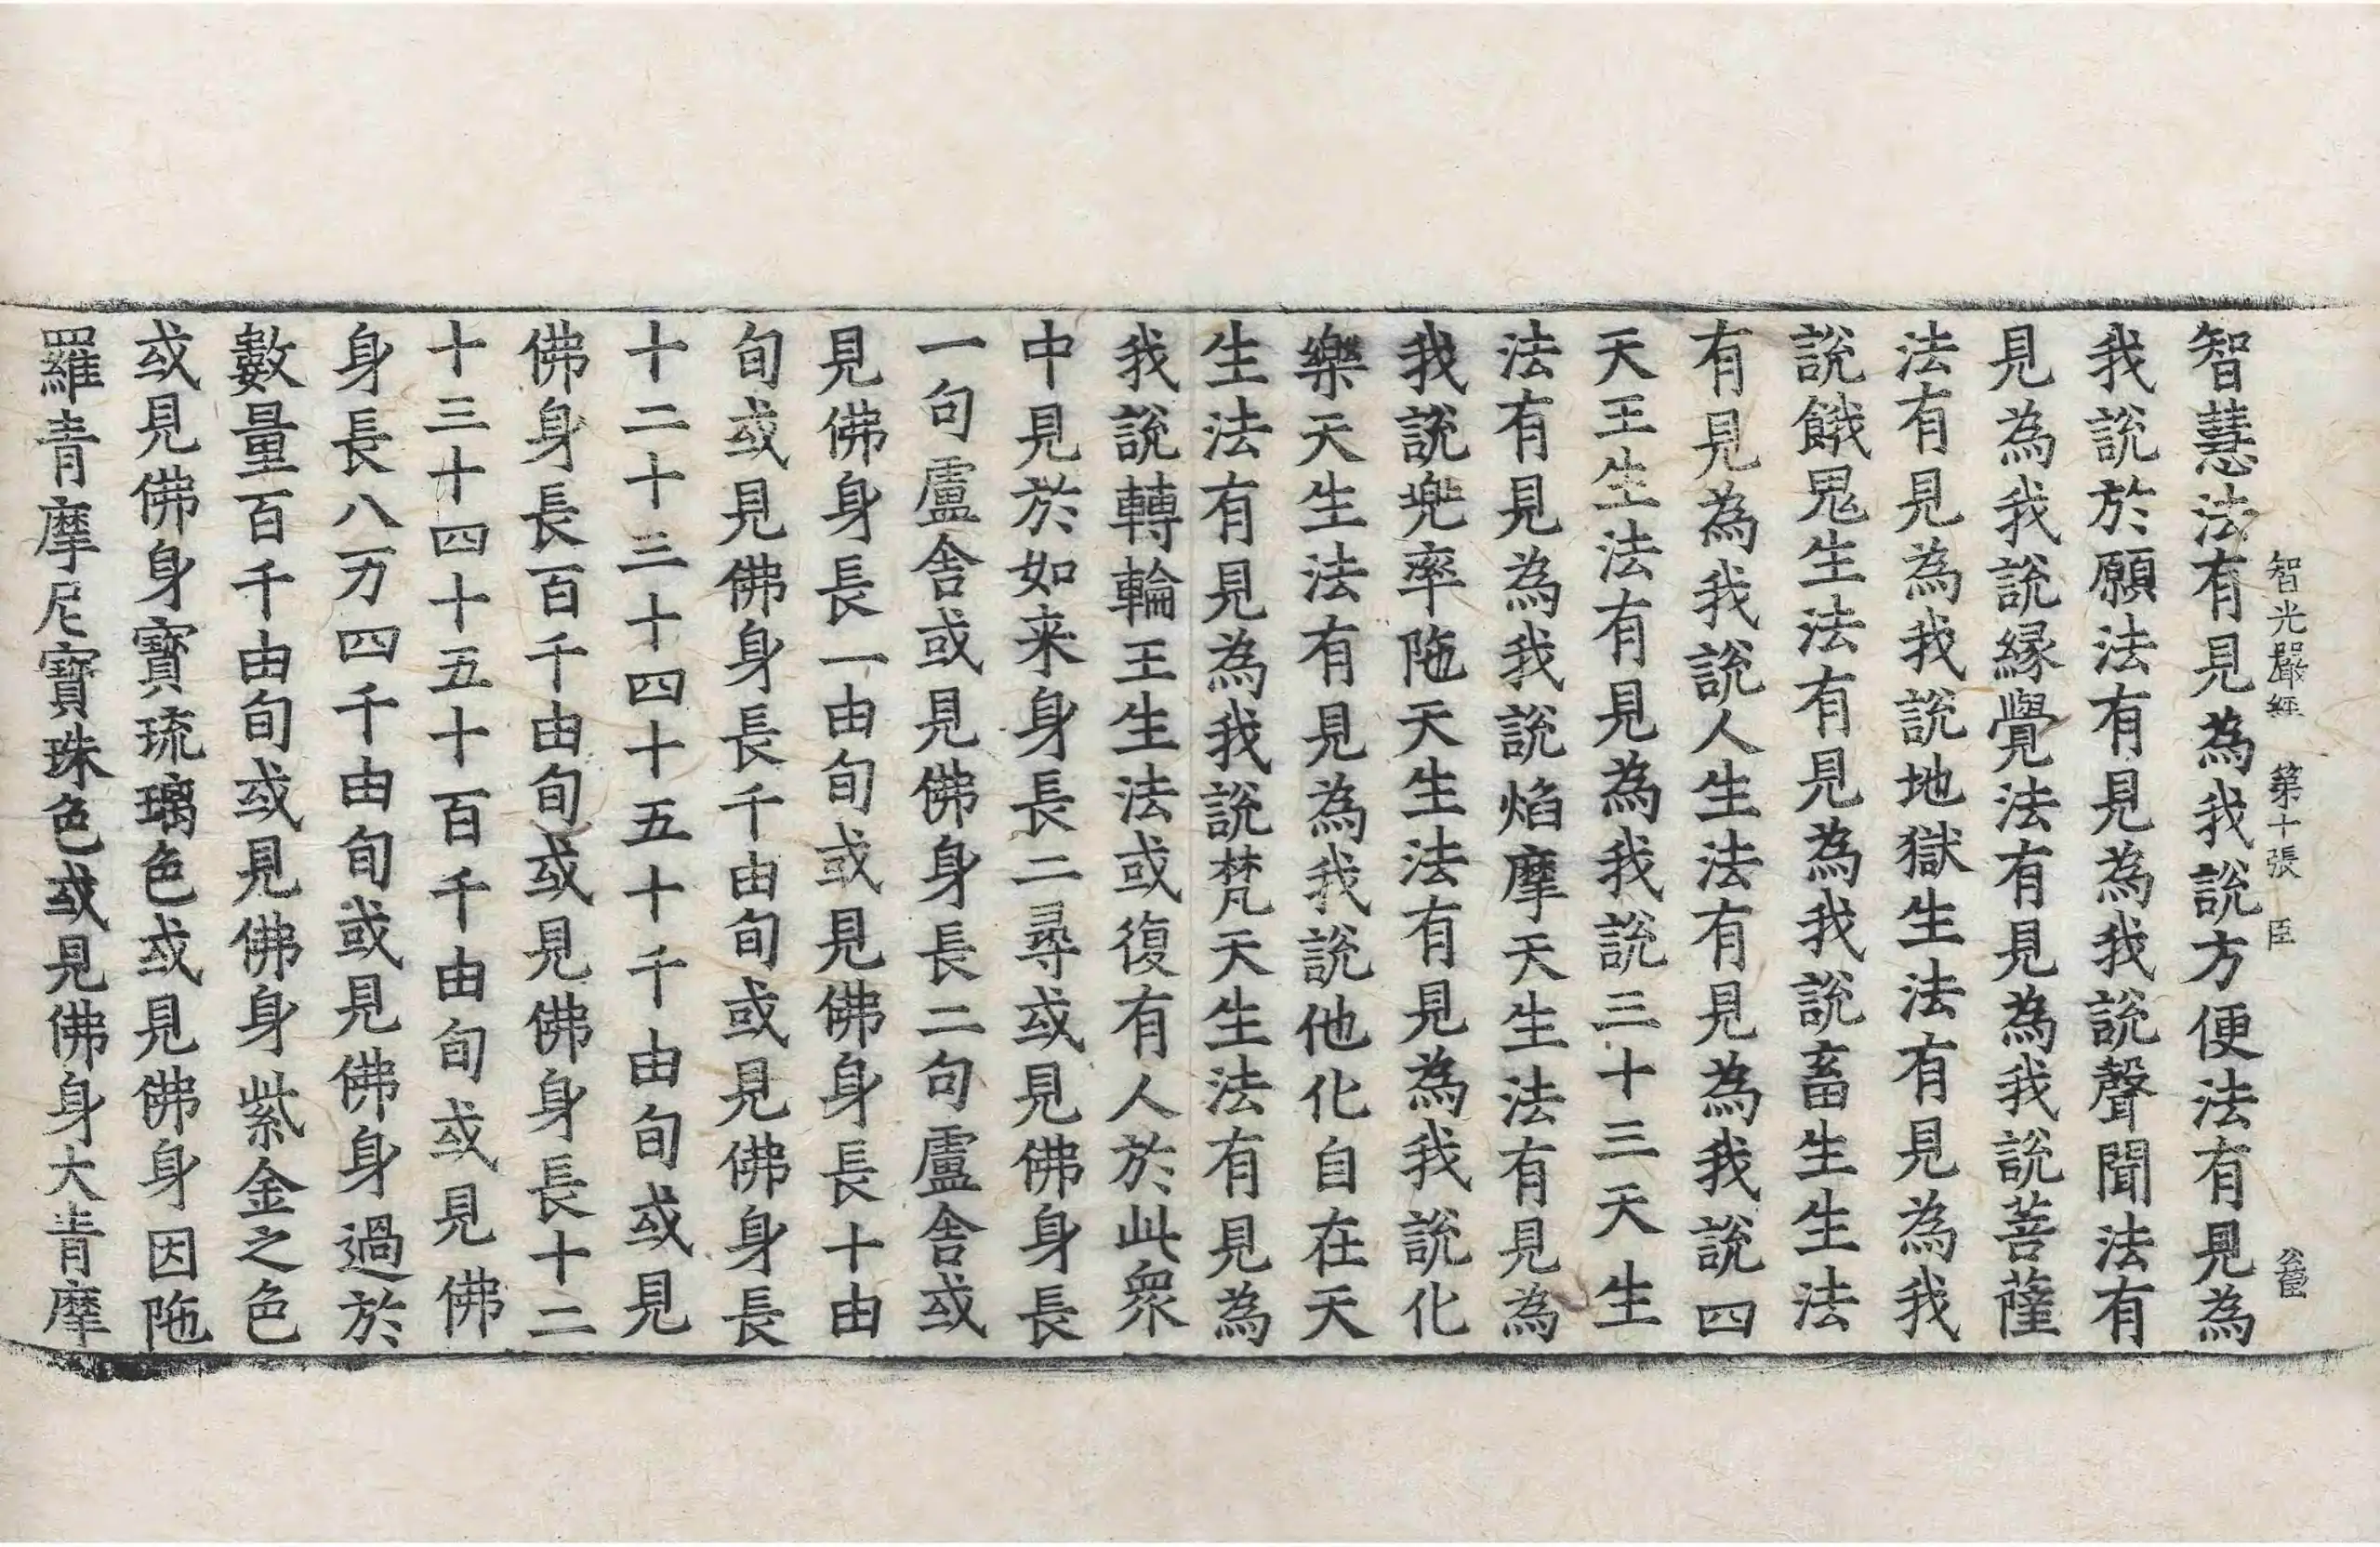 智光嚴經 第十張 臣
智慧法有見為我說方便法有見為
我說於願法有見為我說聲聞法有
見為我說縁覺法有見為我說菩薩
法有見為我說地獄生法有見為我
說餓鬼生法有見為我說畜生生法
有見為我說人生法有見為我說四
天王生法有見為我說三十三天生
法有見為我說焰摩天生法有見為
我說兜率陁天生法有見為我說化
樂天生法有見為我說他化自在天
生法有見為我說梵天生法有見為
我說轉輪王生法或復有人於此衆
中見於如来身長二尋或見佛身長
一句盧舍或見佛身長二句盧舍或
見佛身長一由旬或見佛身長十由
旬或見佛身長千由旬或見佛身長
十二十三十四十五十千由旬或見
佛身長百千由旬或見佛身長十二
十三十四十五十百千由旬或見佛
身長八万四千由旬或見佛身過於
數量百千由旬或見佛身紫金之色
或見佛身寶琉璃色或見佛身因陁
羅青摩尼寶珠色或見佛身大青摩